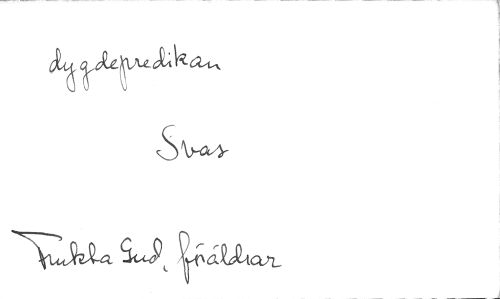 dygdepredikan
Svas
Frukta Gud, föräldrar